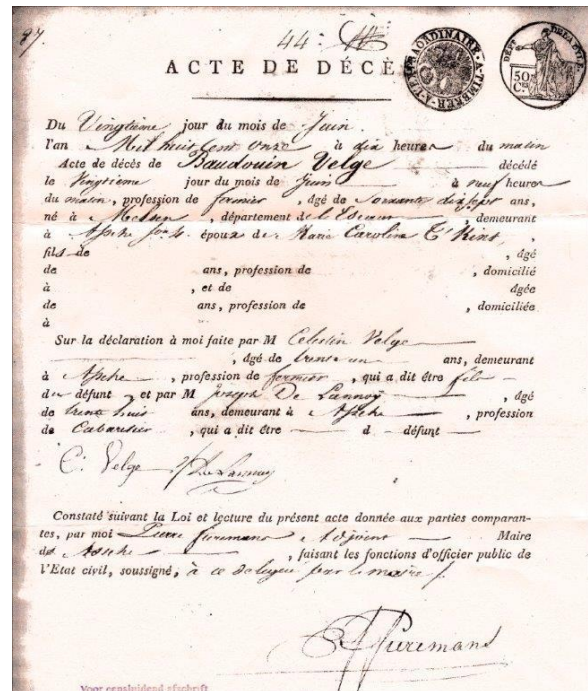 87.
44.
ACTE DE DÉCÈ
EXTRAORDINAIRE
A TIMBRER
DÉPT DE LA DYLE
50
Cs
Du Vingtième jour du mois de Juin
l'an Mil huit cent onze à dix heures du matin
Acte de décès de Baudouin Velge décédé
le Vingtième jour du mois de Juin à neuf heures
du matin, profession de fermier, âgé de soixante dix sept ans,
né à , département de l'Escaut, demeurant
à Assche époux de Marie Caroline T'Kint,
fils de , âgé
de ans, profession de , domicilié
à , et de âgée
de ans, profession de , domiciliée
à
Sur la déclaration à moi faite par M Celestin Velge
, âgé de trente un ans, demeurant
à Assche, profession de fermier, qui a dit être fils
du défunt et par M Joseph De Lannoy, âgé
de trente huit ans, demeurant à Assche, profession
de Cabaretier, qui a dit être d défunt
C. Velge J De Lannoy
Constaté suivant la Loi et lecture du présent acte donnée aux parties comparan-
tes, par moi Pierre Adjoint Maire
de Assche, faisant les fonctions d'officier public de
l'Etat civil, soussigné, à ce délégué par le maire
Voor eensluidend afschrift